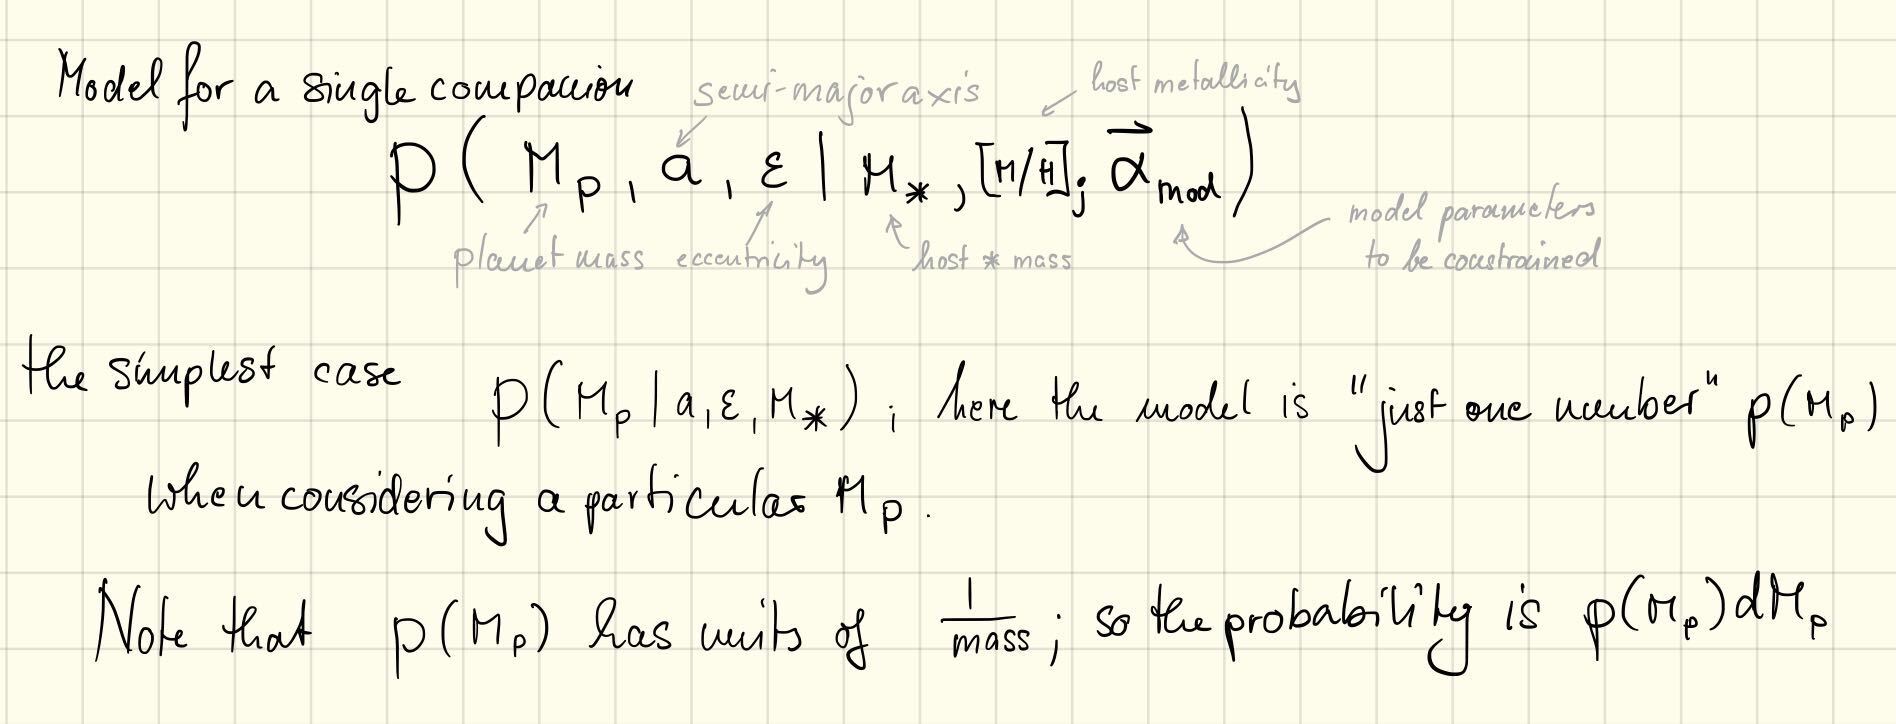 Model for a single companion
semi-major axis
host metallicity
p ( M_p , a , ε | M_* , [M/H] ; \vec{α}_{mod} )
planet mass eccentricity host * mass
model parameters
to be constrained
the simplest case p(M_p | a, ε, M_*) ; here the model is "just one number" p(M_p)
when considering a particular M_p .
Note that p(M_p) has units of \frac{1}{mass} ; so the probability is p(M_p) dM_p